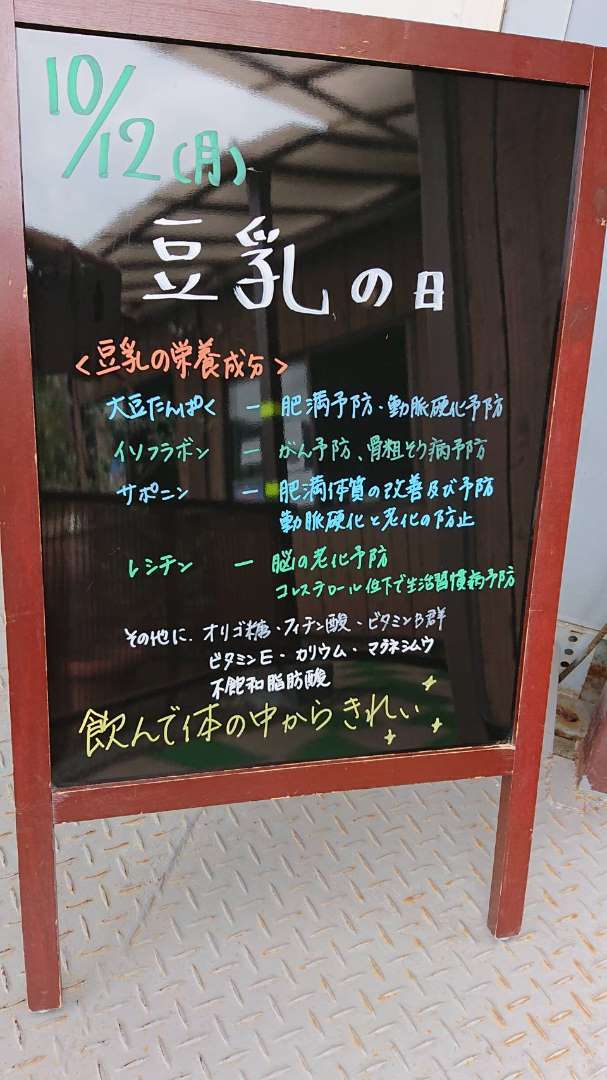 10/12(月)
豆乳の日
<豆乳の栄養成分>
大豆たんぱく ー 肥満予防・動脈硬化予防
イソフラボン ー がん予防、骨粗そう病予防
サポニン ー 肥満体質の改善及び予防
動脈硬化と老化の防止
レシチン ー 脳の老化予防
コレステロール低下で生活習慣病予防
その他に、オリゴ糖・フィチン酸・ビタミンB群
ビタミンE・カリウム・マグネシウム
不飽和脂肪酸
飲んで体の中からきれい